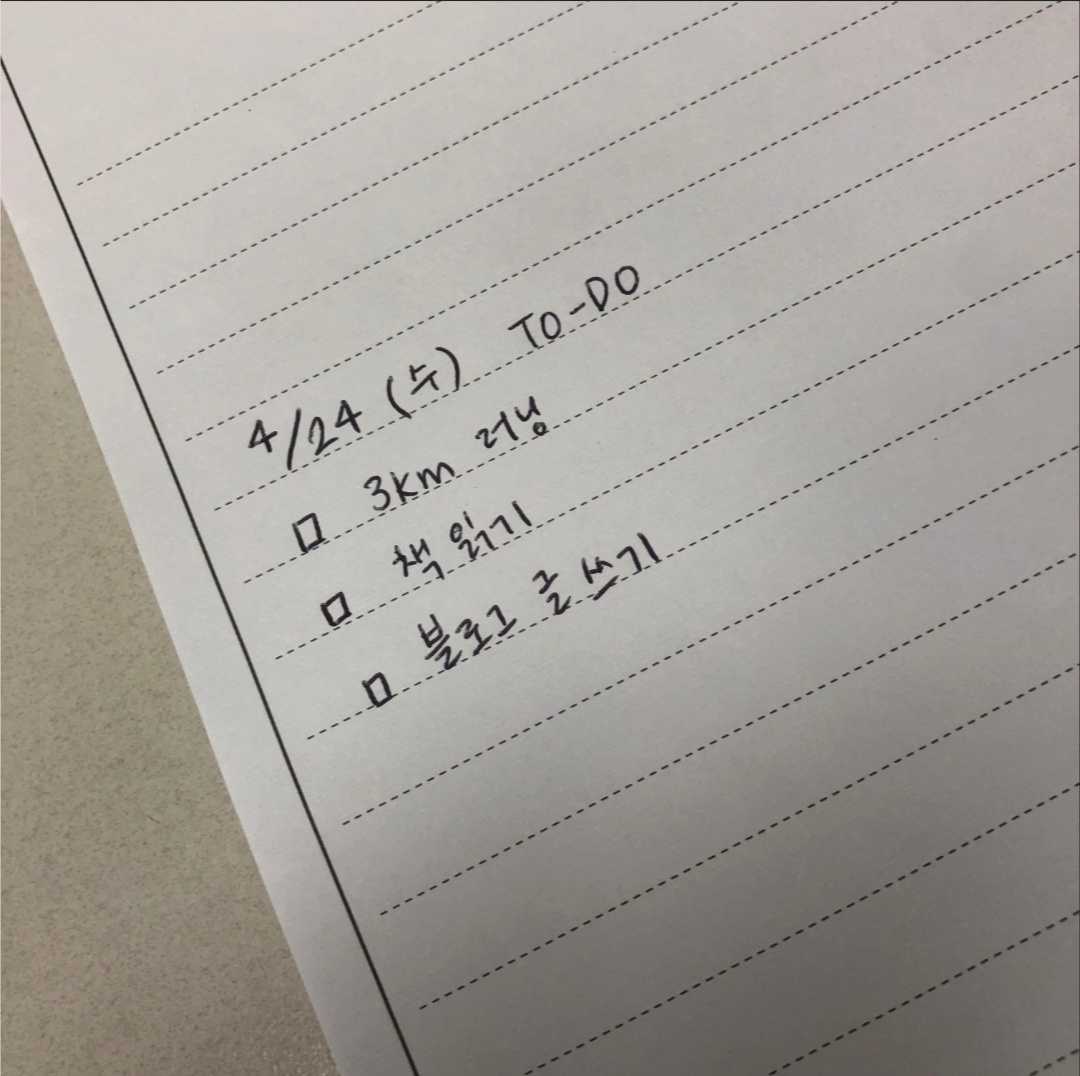 4/24 (수) TO-DO
□ 3km 러닝
□ 책 읽기
□ 블로그 글 쓰기